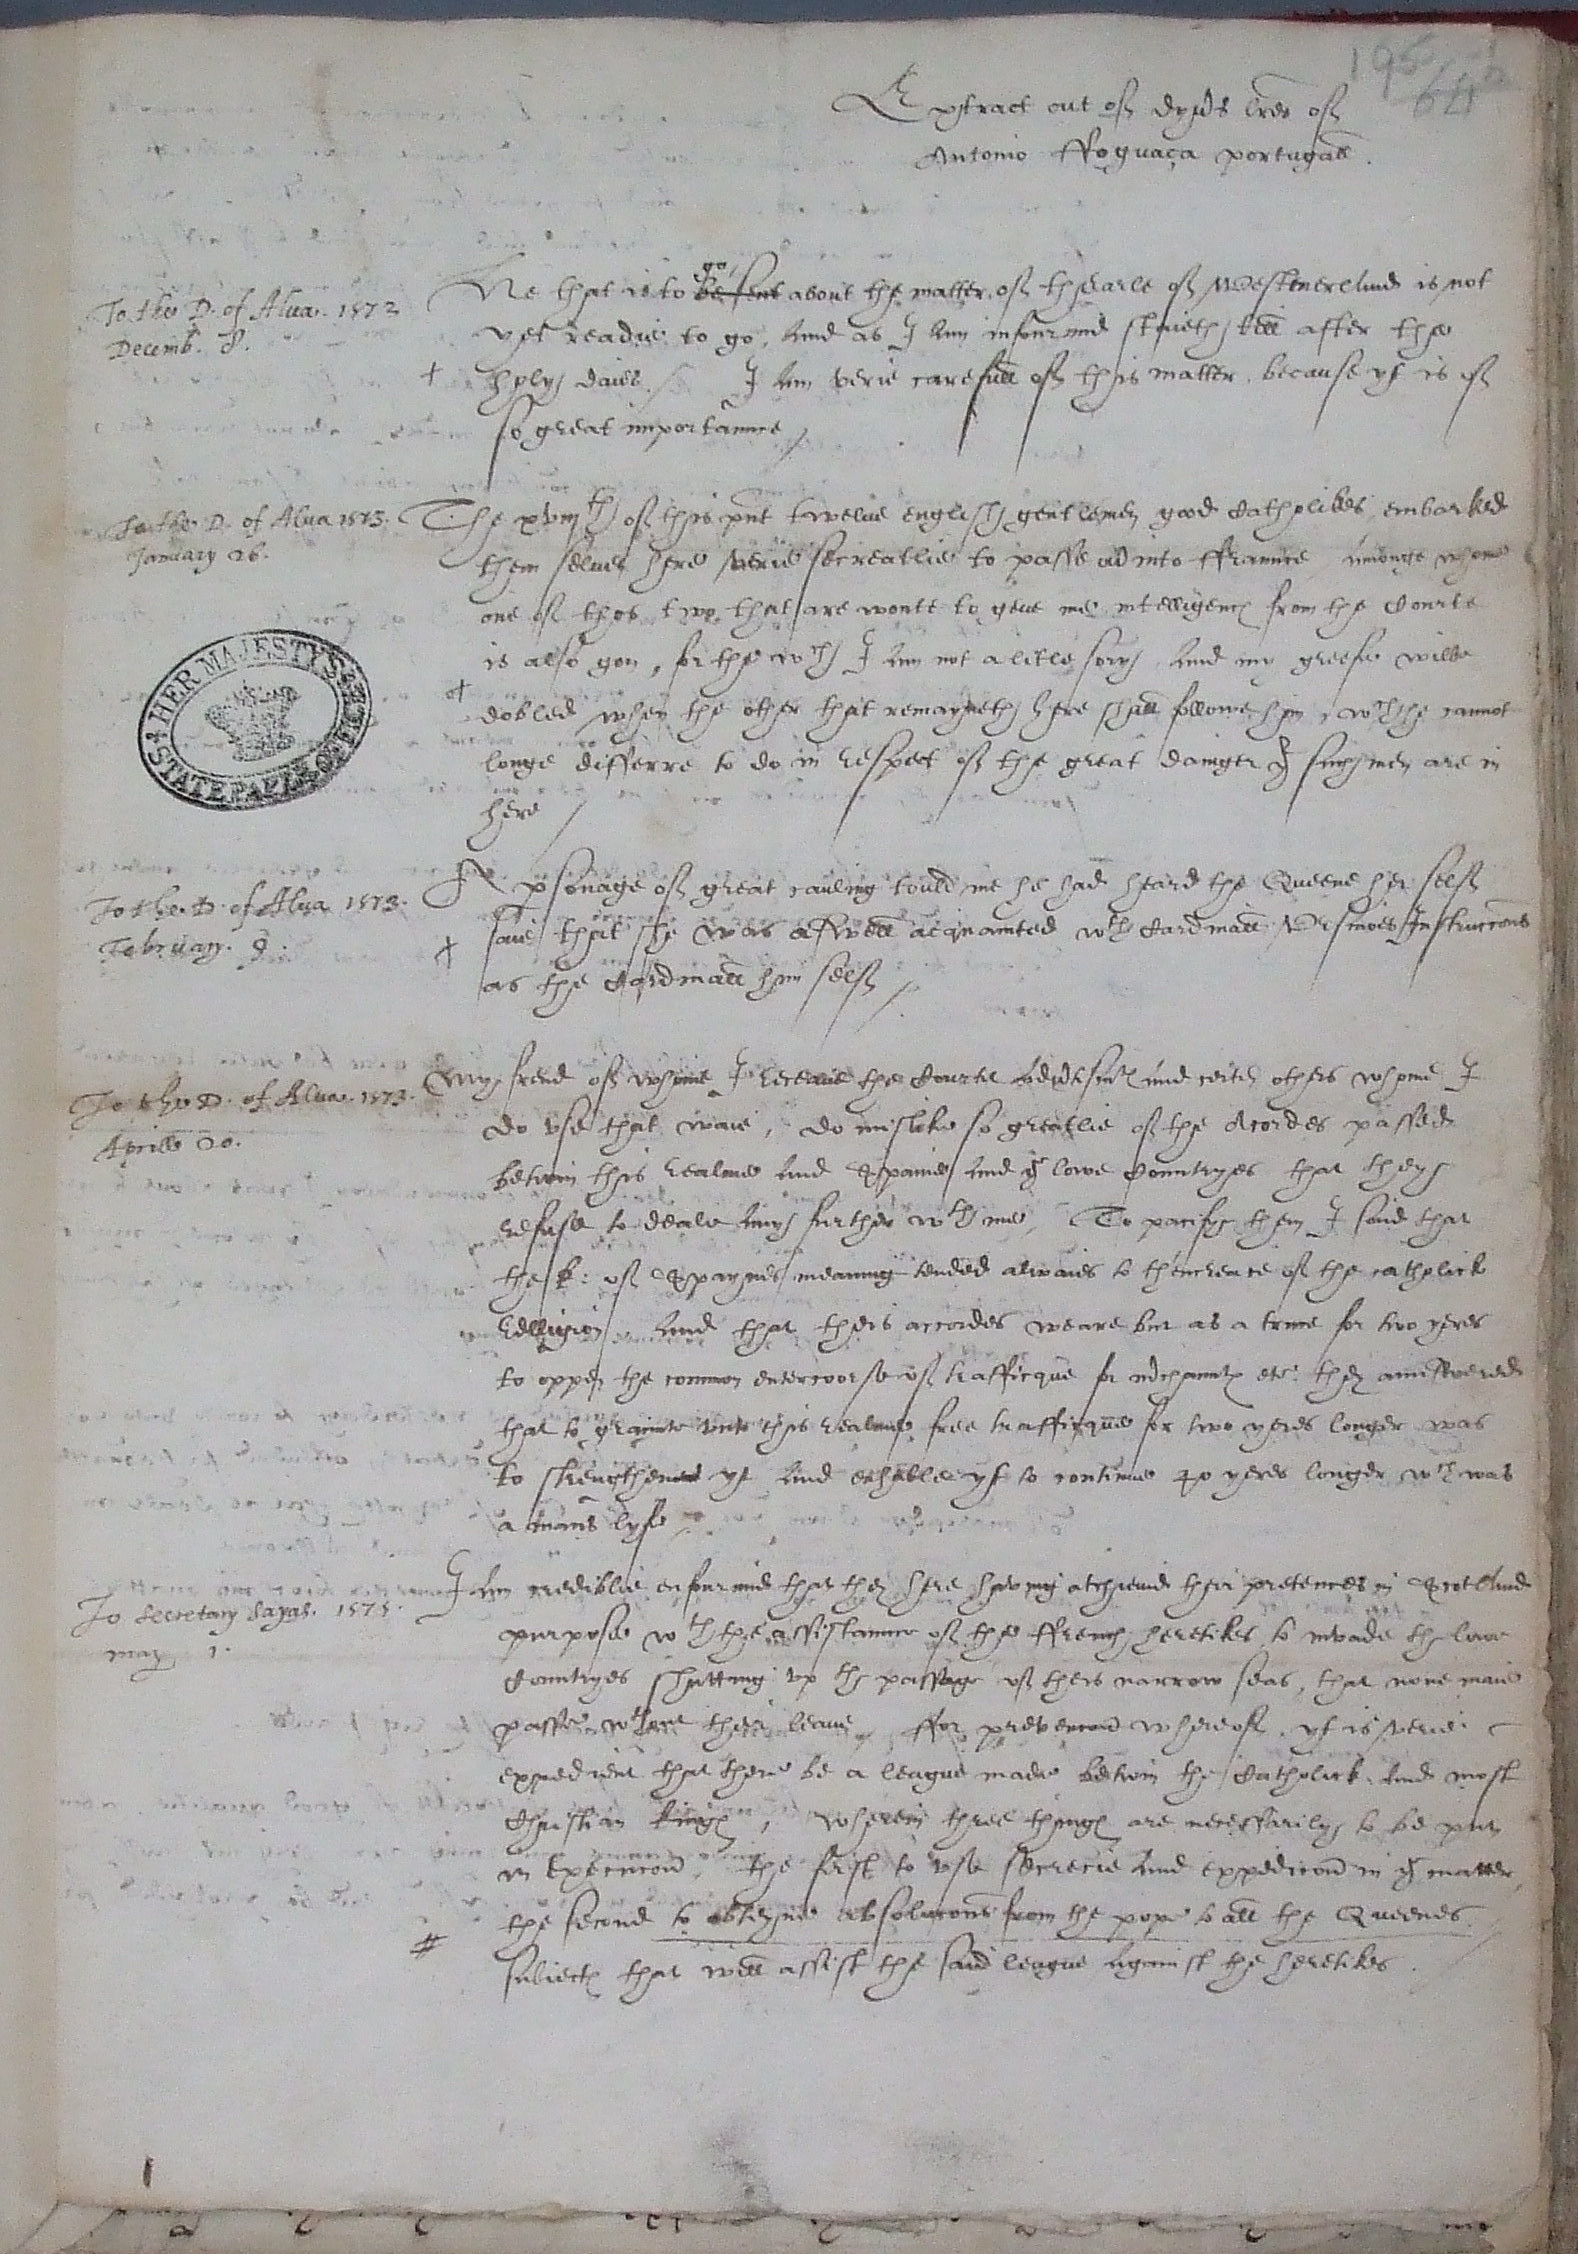 195
64
Extract out of dyvers lres of
Antonio ffoguaça portugall.
To the D. of Alua. 1572
Decemb. 8.
He that is to be sent go about the matter of thearle of Westmerland is not
yet readie to go, And as I am infourmed staieth till after the
+ holy daies. I am verie carefull of this matter, because yt is of
so great importaunce
To the D. of Alua 1573.
January 26.
The xviijth of this pnt twelue english gentlemen good Catholikes embarked
them selues here verie secreatlie to passe into ffraunce amonge whome
one of thos two that are wonte to geue me intelligence from the Courte
is also gon, for the wch I am not a litle sory And my greefe wilbe
+ dobled when the other that remayneth here shall followe him wch he cannot
longe differre to do in respect of the great dainger yt such men are in
here
HER MAJESTY'S STATE PAPER OFFICE
To the D. of Alua 1573.
February. 9.
A psonage of great cauling tould me he had heard the Queene her self
+ saie that she was aswell acquainted wth Cardinall Vrsinoes Instruccons
as the Cardinall him self
To the D. of Alua. 1573.
Aprill 20.
My frend of whome I receaue the Courte advertismts and certen others whome I
do vse that waie, do mislike so greatlie of the Acordes passed
betwin this realme And Spaine And ye lowe Countryes that they
refuse to deale any further wth me, To pacify them I said that
the k: of Spaynes meaning tended alwaies to thencrease of the catholick
relligion And that theis accordes weare but as a truce for two yeres
to oppen the common entercoorse of trafficque for mchauntes etc: they aunswered
that to graunte vnto this realme free trafficque for two yeres longer was
to strengthen yt And enhable yt to continue 40 yeres longer wch was
a mans lyfe
To Secretary Sayas. 1573.
may 1.
I am credible enfourmed that they here having atchieued their pretences in Scotland
purpose wth the assistaunce of the ffrench heretikes to invade the lowe
Countryes shutting vp the passage of theis narrow seas, that none maie
passe wthout their leaue, ffor prevencon whereof yt is verie
expedient that there be a league made betwin the Catholick And most
Christian Kinges, wherein three thinges are necessarily to be put
in Execucon, the first to vse secrecie And expedicon in ye matter,
the second to obteyne absolucons from the pope to all the Queenes
# subiectes that will assist the said league Against the heretikes.